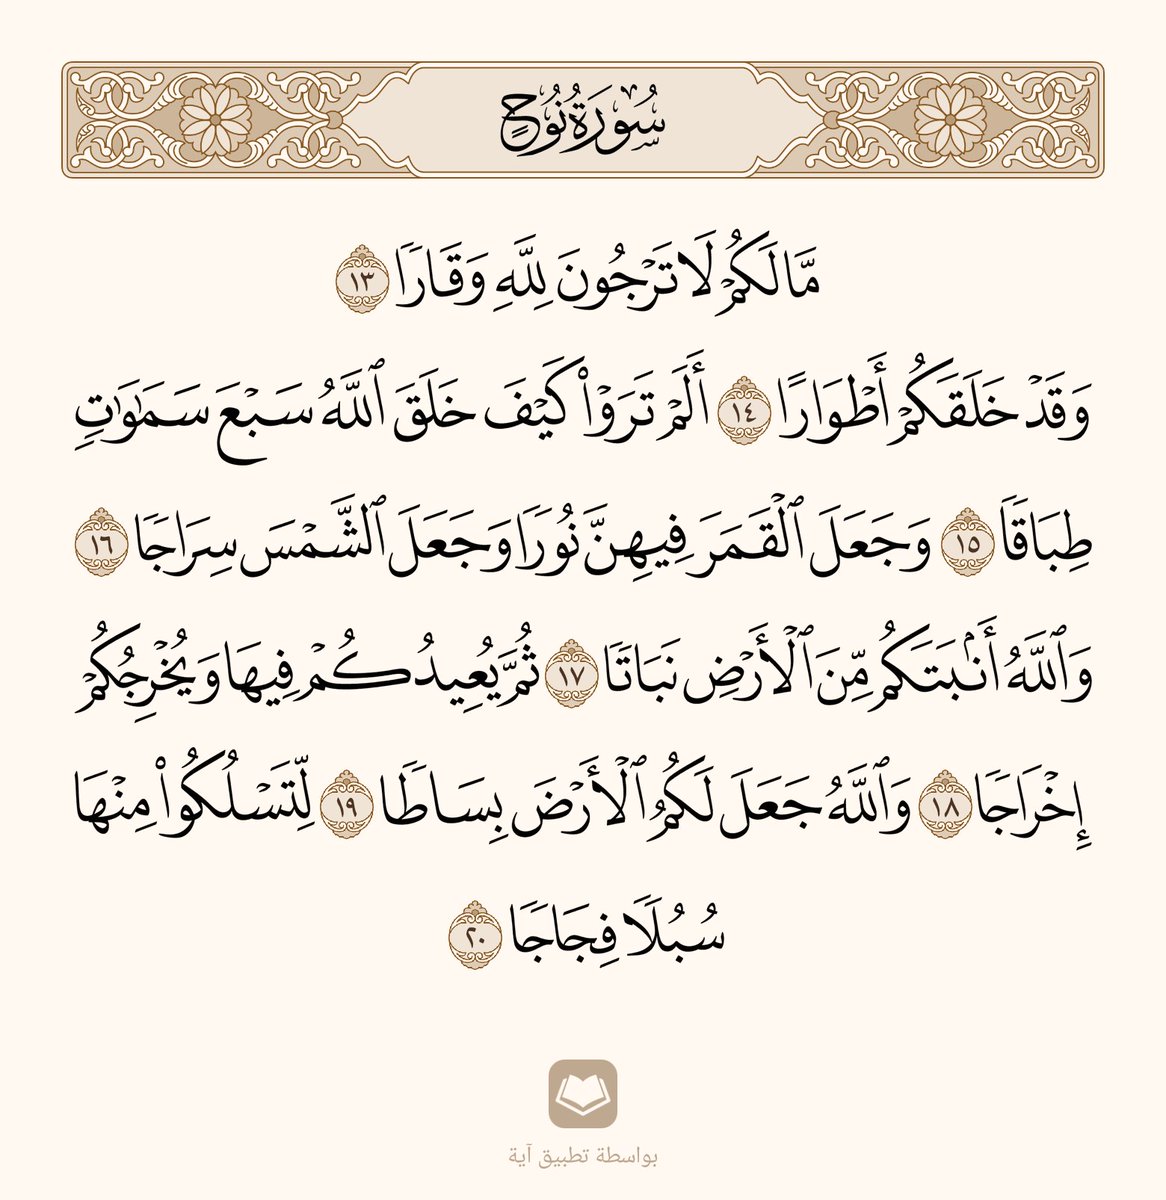 سُورَةُ نُوحٍ
مَّا لَكُمْ لَا تَرْجُونَ لِلَّهِ وَقَارًا ١٣
وَقَدْ خَلَقَكُمْ أَطْوَارًا ١٤ أَلَمْ تَرَوْا۟ كَيْفَ خَلَقَ ٱللَّهُ سَبْعَ سَمَٰوَٰتٍ
طِبَاقًا ١٥ وَجَعَلَ ٱلْقَمَرَ فِيهِنَّ نُورًا وَجَعَلَ ٱلشَّمْسَ سِرَاجًا ١٦
وَٱللَّهُ أَنۢبَتَكُم مِّنَ ٱلْأَرْضِ نَبَاتًا ١٧ ثُمَّ يُعِيدُكُمْ فِيهَا وَيُخْرِجُكُمْ
إِخْرَاجًا ١٨ وَٱللَّهُ جَعَلَ لَكُمُ ٱلْأَرْضَ بِسَاطًا ١٩ لِّتَسْلُكُوا۟ مِنْهَا
سُبُلًا فِجَاجًا ٢٠
بواسطة تطبيق آية